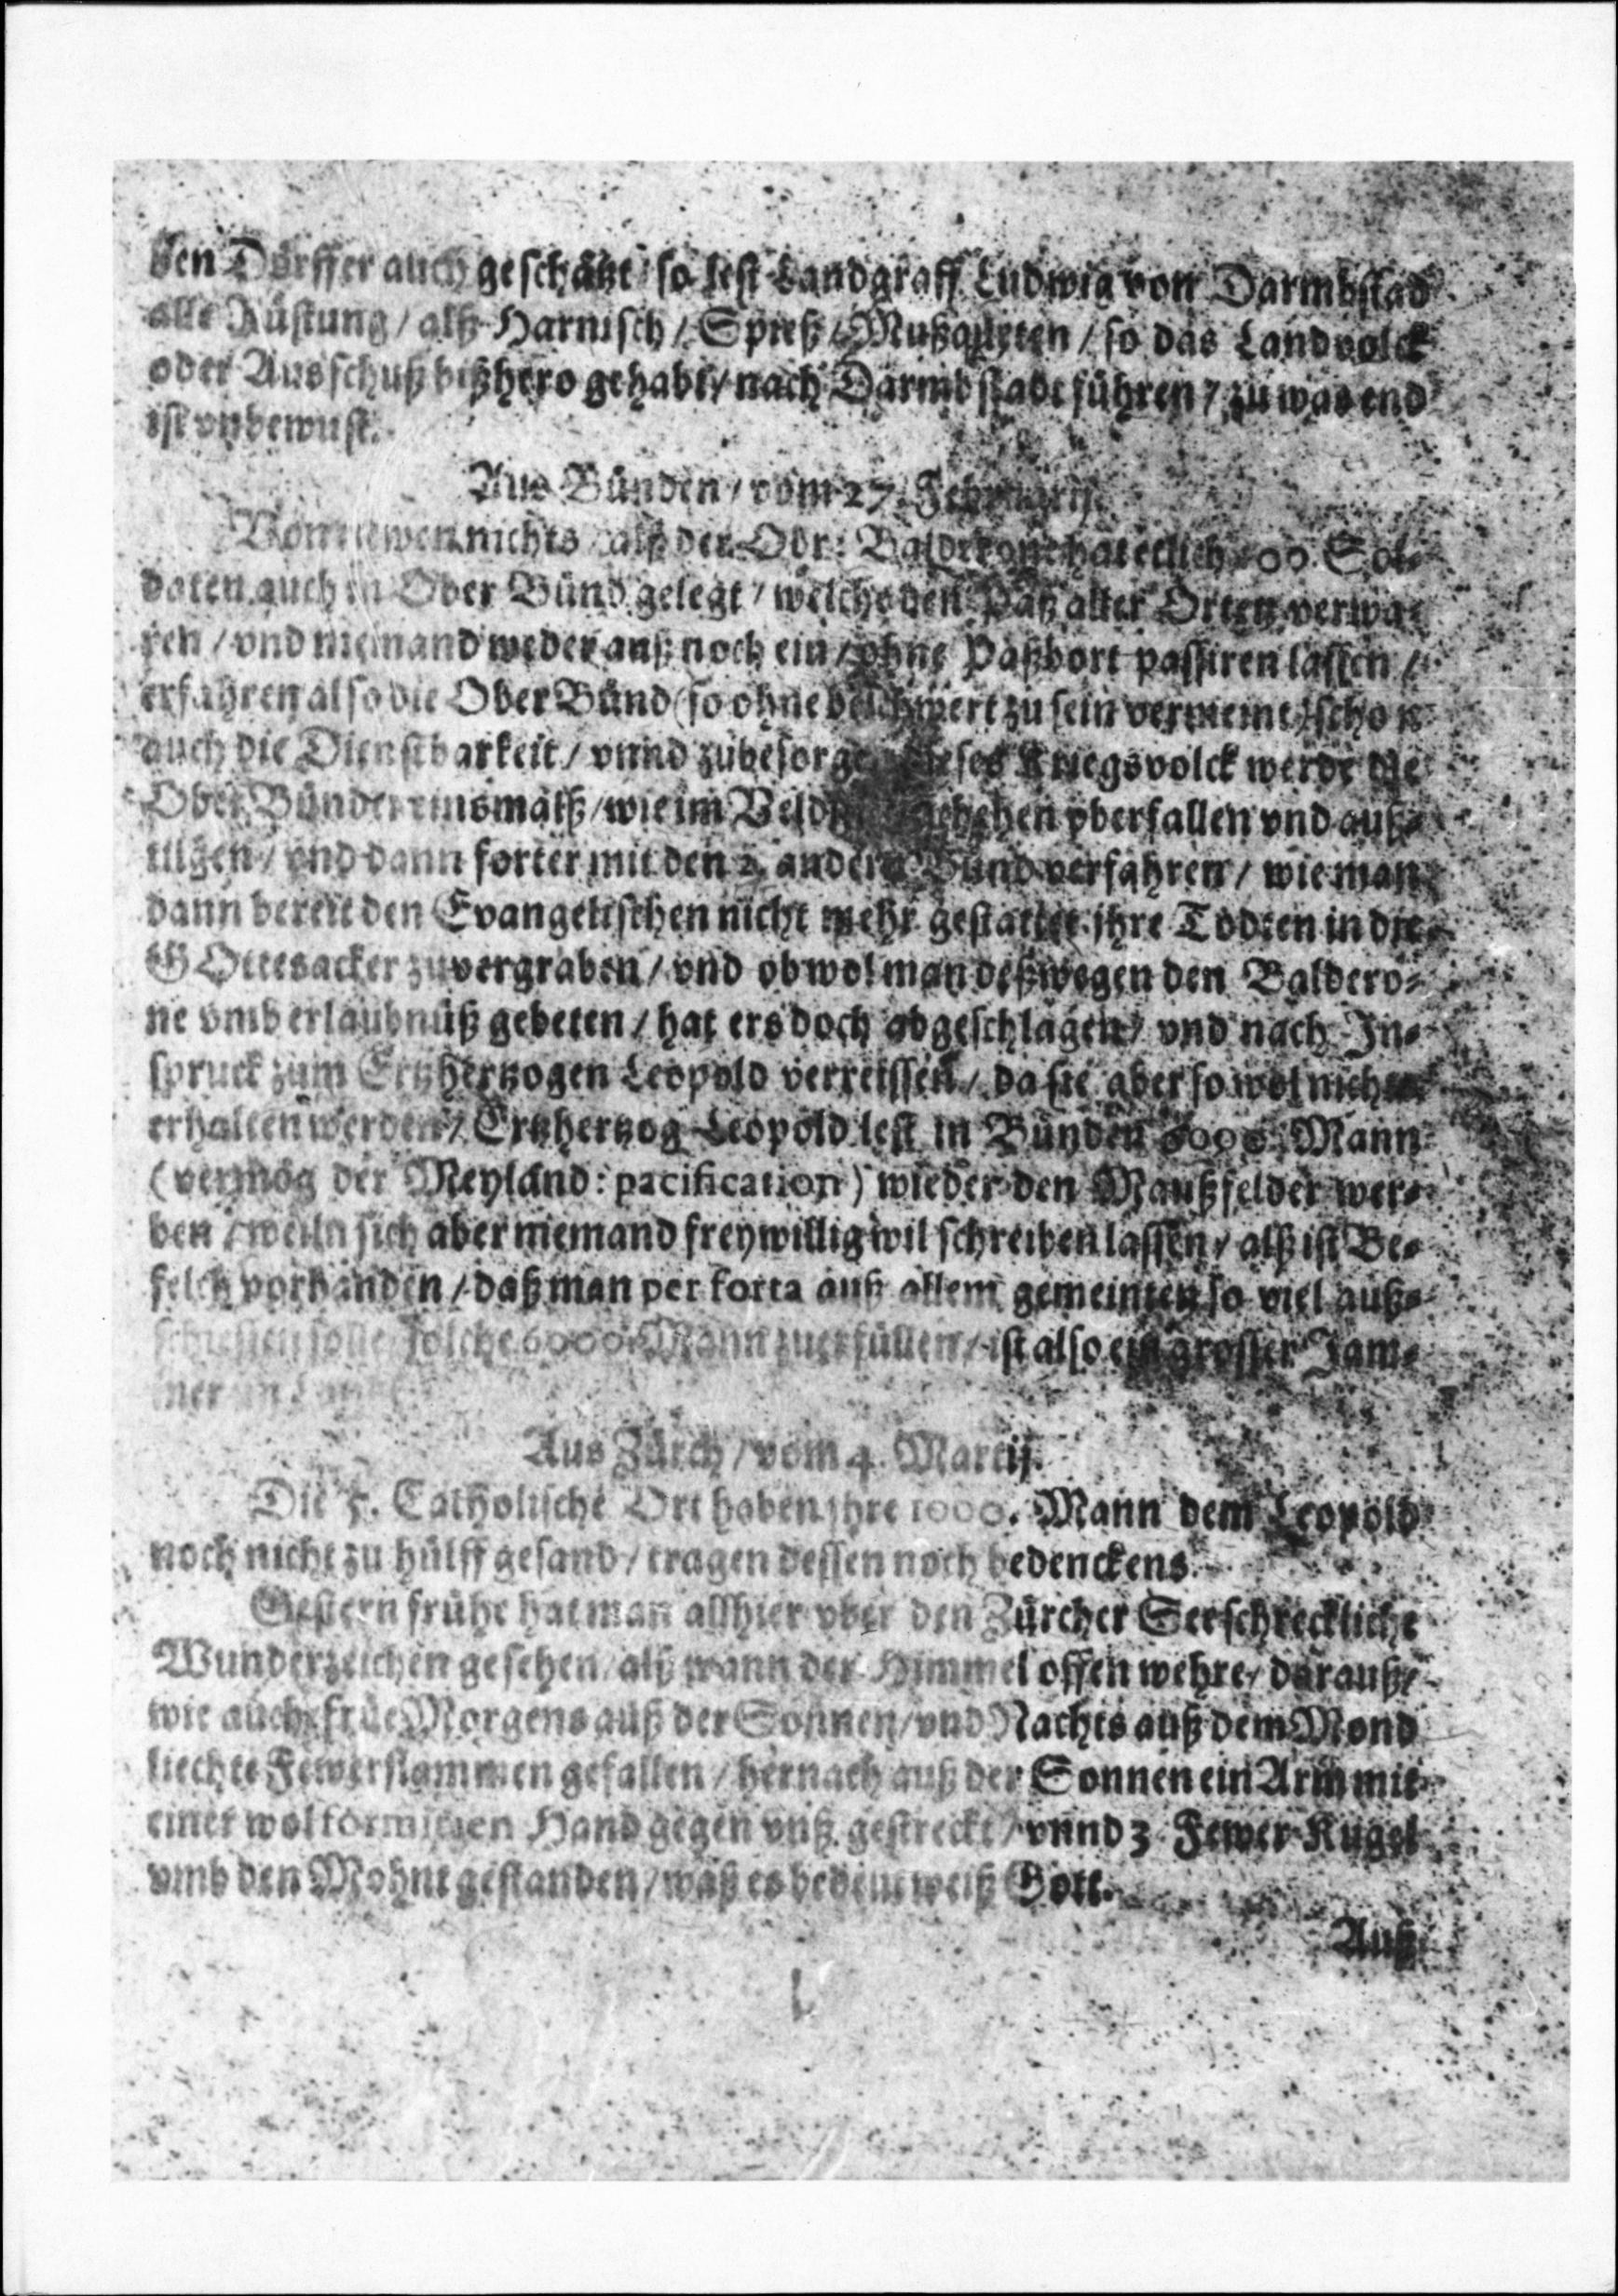 den Dörffer auch geschätzt so lest Landgraff Ludwig von Darmbstad
alle Rüstung / alß Harnisch / Spieß / Mußqueten / so das Landvolck
oder Ausschuß bißhero gehabt / nach Darmbstadt führen / zu was end
ist vnbewust.
Aus Bünden / vom 27. Februarij.
Von newen nichts alß der Obr: Balderone hat etlich 100. Sol-
daten auch in Ober Bünd gelegt / welche den Paß aller Orten verwa-
ren / vnd niemand weder auß noch ein / ohne Paßbort passiren lassen /
erfahren also die Ober Bünd (so ohne beschwert zu sein vermeint) schon
auch die Dienstbarkeit / vnnd zubesorge dieses Kriegsvolck werde die
Ober Bünder einsmalß / wie im Veld geschehen vberfallen vnd auß-
tilgen / vnd dann forter mit den 2. andern Bund verfahren / wie man
dann bereit den Evangelischen nicht mehr gestattet jhre Todten in die
GOttesacker zuvergraben / vnd obwol man deßwegen den Baldero-
ne vmb erlaubnüß gebeten / hat ers doch abgeschlagen / vnd nach In-
spruck zum Ertzhertzogen Leopold verreissen / da sie aber so wol nichts
erhalten werden / Ertzhertzog Leopold lest in Bünden 6000. Mann
(vermög der Meyländ: pacification) wieder den Manßfelder wer-
ben / weiln sich aber niemand freywillig wil schreiben lassen / alß ist Be-
felch vorhanden / daß man per forta auß allem gemeinten so viel auß-
schiessen solle solche 6000. Mann zuerfüllen / ist also ein grosser Jam-
mer im Land.
Aus Zürch / vom 4. Martij.
Die 5. Catholische Ort haben jhre 1000. Mann dem Leopold
noch nicht zu hülff gesand / tragen dessen noch bedenckens.
Gestern frühe hat man allhier vber den Zürcher See schreckliche
Wunderzeichen gesehen / alß wann der Himmel offen wehre / darauß /
wie auch früe Morgens auß der Sonnen / vnd Nachts auß dem Mond
liechte Fewerflammen gefallen / hernach auß der Sonnen ein Arm mit
einer wolformigen Hand gegen vnß gestreckt / vnnd 3. Fewer Kugel
vmb den Mohnt gestanden / waß es bedeut weiß Gott.
Auß